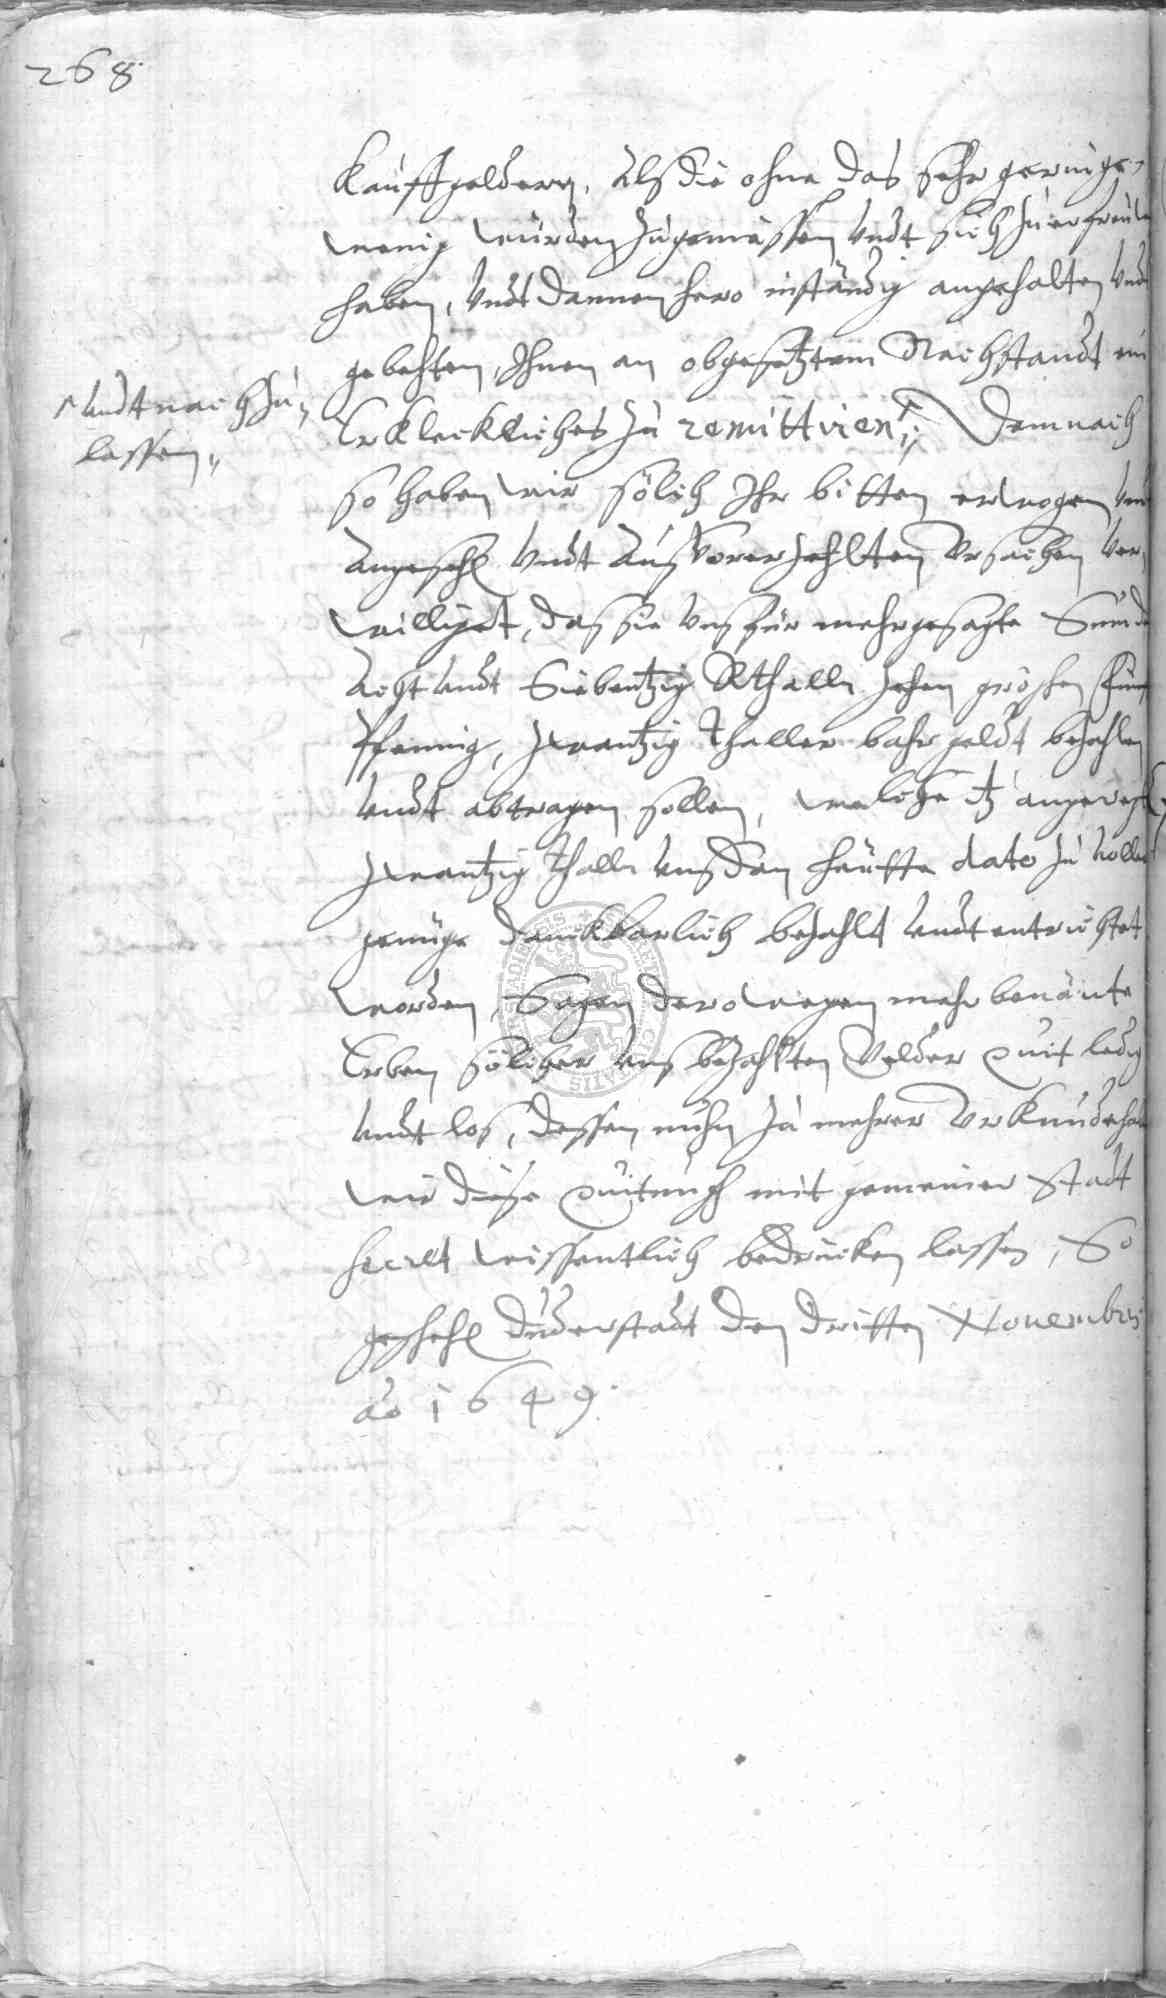 268
Kauffgeldern, alß die ohne das sehr geringe,
wenig würden zugemiessen vndt sich zuerfreuwen
haben, vndt dannenhero inständig angehalten vndt
gebehten, Ihnen an obgesetztem Nachstandt ein
Erkleckliches zu remittiren, Demnach
vndt nachzu
lassen,
so haben wir solch Ihr bitten erwogen
angesehn vndt auß vorerzehlten Vrsachen ver
williget, das sie vnß für mehrgesagte
Acht vndt Siebentzig Rthall zehen groschen
Pfennig, zwantzig thaller bahr geldt bezahlen
vndt abtragen sollen, welche itz angeregte
zwantzig thall vnß dan heutte dato zu voller
genüge danckbarlich bezahlt vndt entrichtet
worden, Sagen derowegen mehr benante
Erben solcher vnß bezahlten Gelder quit ledig
vndt loß, dessen nuhn zu mehrer Vrkundt
wir diese quitung mit gemeiner Stadt
secret wissentlich bedrucken lassen, So
geschehn Duderstadt den dritten Nouembris
ao 1649.